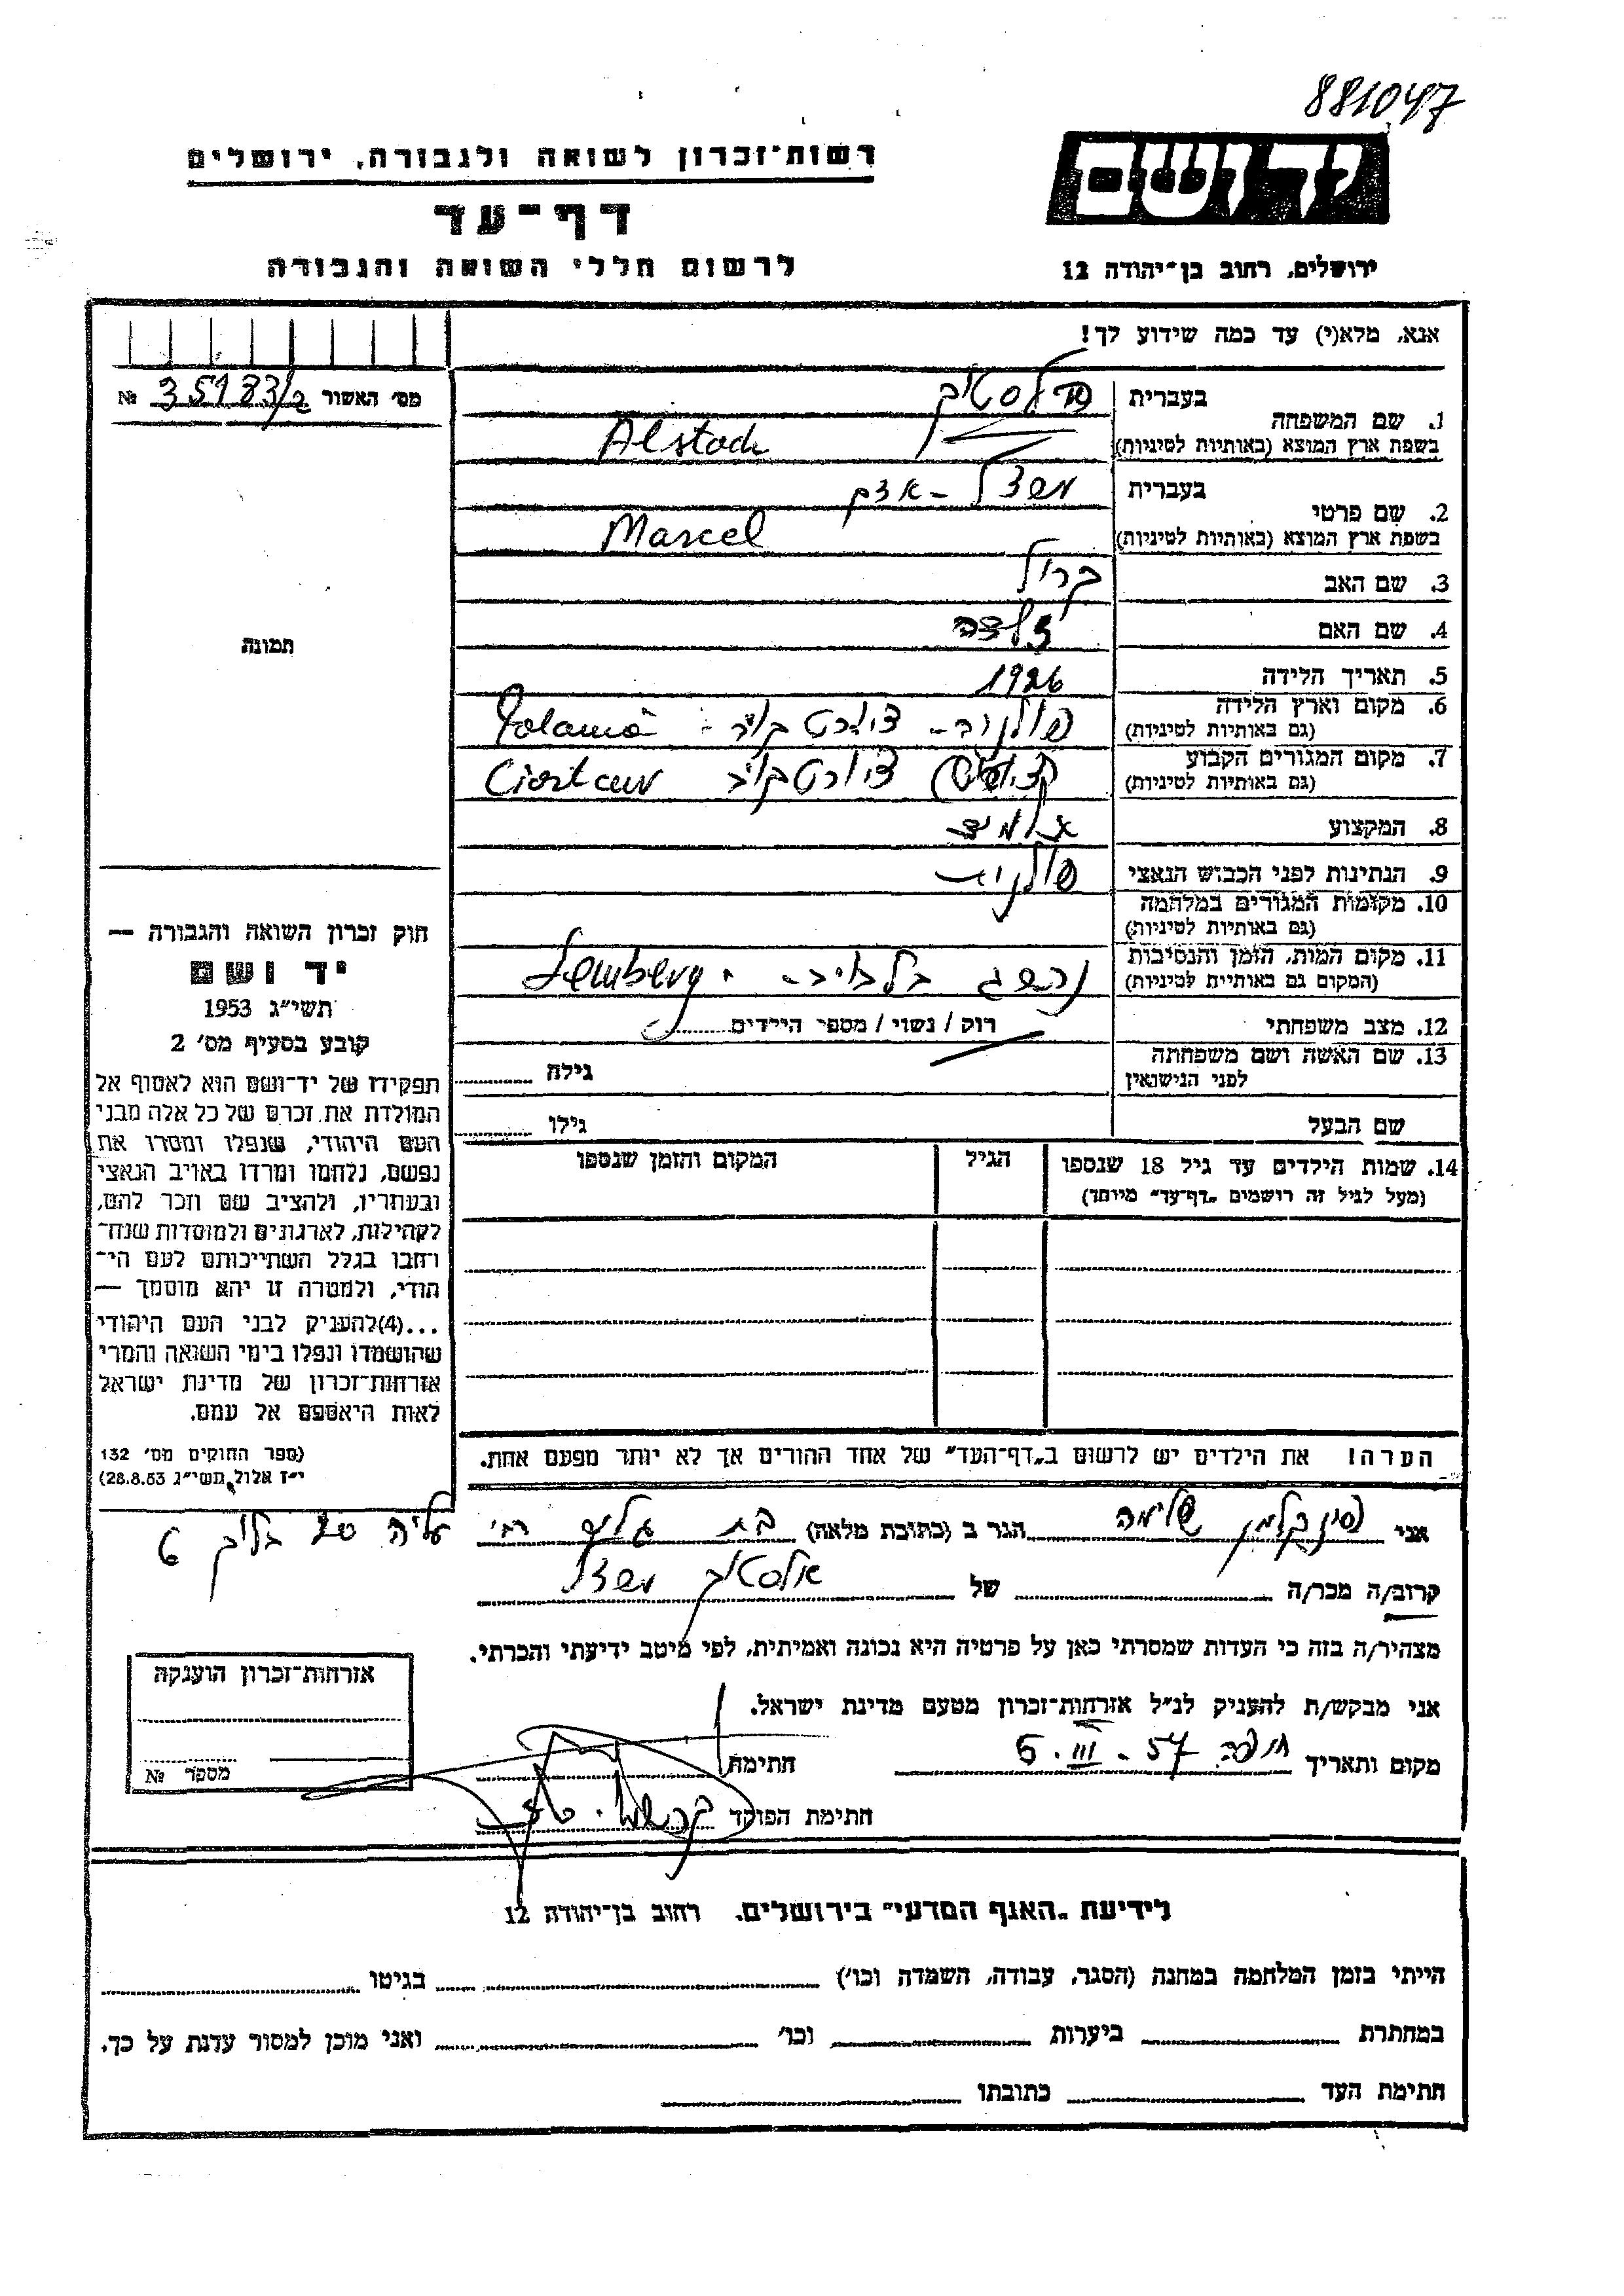 881047
רשות־זכרון לשואה ולגבורה, ירושלים
יד ושם
דף־עד
לרשום חללי השואה והגבורה
ירושלים, רחוב בן־יהודה 12
אנא, מלא(י) עד כמה שידוע לך!
מס׳ האשור 35183/2 №
1. שם המשפחה
בעברית
בשפת ארץ המוצא (באותיות לטיניות) Alstock
2. שם פרטי
בעברית
בשפת ארץ המוצא (באותיות לטיניות) Marcel
3. שם האב
4. שם האם
5. תאריך הלידה 1926
6. מקום וארץ הלידה
(גם באותיות לטיניות) Polania
7. מקום המגורים הקבוע
(גם באותיות לטיניות)
8. המקצוע תלמיד
9. הנתינות לפני הכבוש הנאצי פולנית
10. מקומות המגורים במלחמה
(גם באותיות לטיניות)
11. מקום המות, הזמן והנסיבות
(המקום גם באותיית לטיניות) Lemberg
12. מצב משפחתי רוק / נשוי / מספר הילדים
13. שם האשה ושם משפחתה
לפני הנישואין
גילה
שם הבעל גילו
14. שמות הילדים עד גיל 18 שנספו
(מעל לגיל זה רושמים „דף־עד״ מיוחד)
הגיל
המקום והזמן שנספו
תמונה
חוק זכרון השואה והגבורה —
יד ושם
תשי״ג 1953
קובע בסעיף מס׳ 2
תפקידו של יד־ושם הוא לאסוף אל
המולדת את זכרם של כל אלה מבני
העם היהודי, שנפלו ומסרו את
נפשם, נלחמו ומרדו באויב הנאצי
ובעוזריו, ולהציב שם וזכר להם,
לקהילות, לארגונים ולמוסדות שנח־
רחבו בגלל השתייכותם לעם הי־
הודי, ולמטרה זו יהא מוסמך —
...(4)להעניק לבני העם היהודי
שהושמדו ונפלו בימי השואה והמרי
אזרחות־זכרון של מדינת ישראל
לאות היאספם אל עמם.
(ספר החוקים מס׳ 132
י״ז אלול תשי״ג 28.8.53)
הערה! את הילדים יש לרשום ב„דף־העד״ של אחד ההורים אך לא יותר מפעם אחת.
אני הגר ב (כתובת מלאה) בת גלים רח׳ עליה 20
קרוב/ה מכר/ה של
מצהיר/ה בזה כי העדות שמסרתי כאן על פרטיה היא נכונה ואמיתית, לפי מיטב ידיעתי והכרתי.
אני מבקש/ת להעניק לנ״ל אזרחות־זכרון מטעם מדינת ישראל.
מקום ותאריך חיפה 6.III-57 חתימה
חתימת הפוקד
אזרחות־זכרון הוענקה
מספר №
לידיעת „האגף המדעי״ בירושלים. רחוב בן־יהודה 12
הייתי בזמן המלחמה במחנה (הסגר, עבודה, השמדה וכו׳) בגיטו
במחתרת ביערות וכו׳ ואני מוכן למסור עדות על כך.
חתימת העד כתובתו